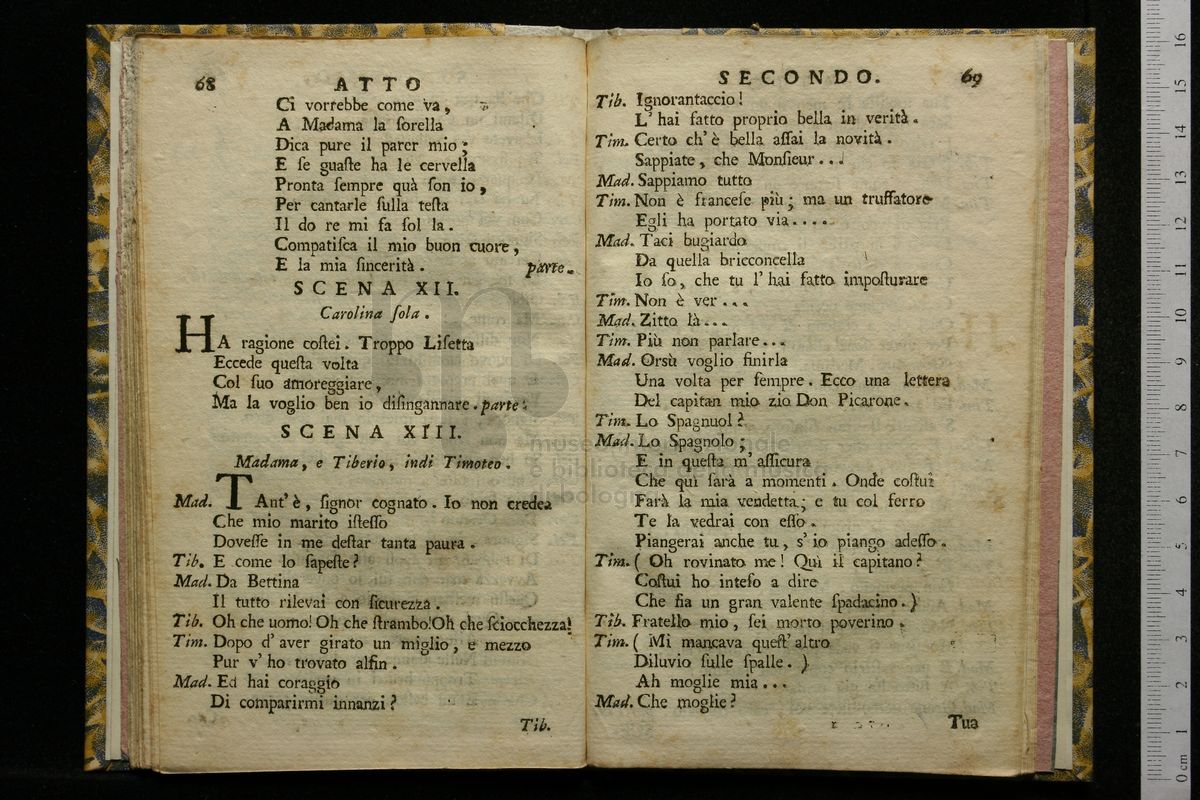 68 ATTO
Ci vorrebbe come va,
A Madama la ſorella
Dica pure il parer mio;
E ſe guaſte ha le cervella
Pronta ſempre quà ſon io,
Per cantarle ſulla teſta
Il do re mi fa ſol la.
Compatiſca il mio buon cuore,
E la mia ſincerità. parte.
SCENA XII.
Carolina ſola.
HA ragione coſtei. Troppo Liſetta
Eccede queſta volta
Col ſuo amoreggiare,
Ma la voglio ben io diſingannare. parte.
SCENA XIII.
Madama, e Tiberio, indi Timoteo.
Mad. TAnt' è, ſignor cognato. Io non credea
Che mio marito iſteſſo
Doveſſe in me deſtar tanta paura.
Tib. E come lo ſapeſte?
Mad. Da Bettina
Il tutto rilevai con ſicurezza.
Tib. Oh che uomo! Oh che ſtrambo! Oh che ſciocchezza!
Tim. Dopo d' aver girato un miglio, e mezzo
Pur v' ho trovato alfin.
Mad. Ed hai coraggio
Di comparirmi innanzi?
Tib.
SECONDO. 69
Tib. Ignorantaccio!
L' hai fatto proprio bella in verità.
Tim. Certo ch' è bella aſſai la novità.
Sappiate, che Monſieur...
Mad. Sappiamo tutto
Tim. Non è franceſe più; ma un truffatore
Egli ha portato via....
Mad. Taci bugiardo
Da quella bricconcella
Io ſo, che tu l' hai fatto impoſturare
Tim. Non è ver...
Mad. Zitto là...
Tim. Più non parlare...
Mad. Orsù voglio finirla
Una volta per ſempre. Ecco una lettera
Del capitan mio zio Don Picarone.
Tim. Lo Spagnuol?
Mad. Lo Spagnolo;
E in queſta m' aſſicura
Che quì ſarà a momenti. Onde coſtui
Farà la mia vendetta; e tu col ferro
Te la vedrai con eſſo.
Piangerai anche tu, s' io piango adeſſo.
Tim. ( Oh rovinato me! Quì il capitano?
Coſtui ho inteſo a dire
Che ſia un gran valente ſpadacino.)
Tib. Fratello mio, ſei morto poverino.
Tim. ( Mi mancava queſt' altro
Diluvio ſulle ſpalle. )
Ah moglie mia...
Mad. Che moglie?
Tua
0 cm 1 2 3 4 5 6 7 8 9 10 11 12 13 14 15 16